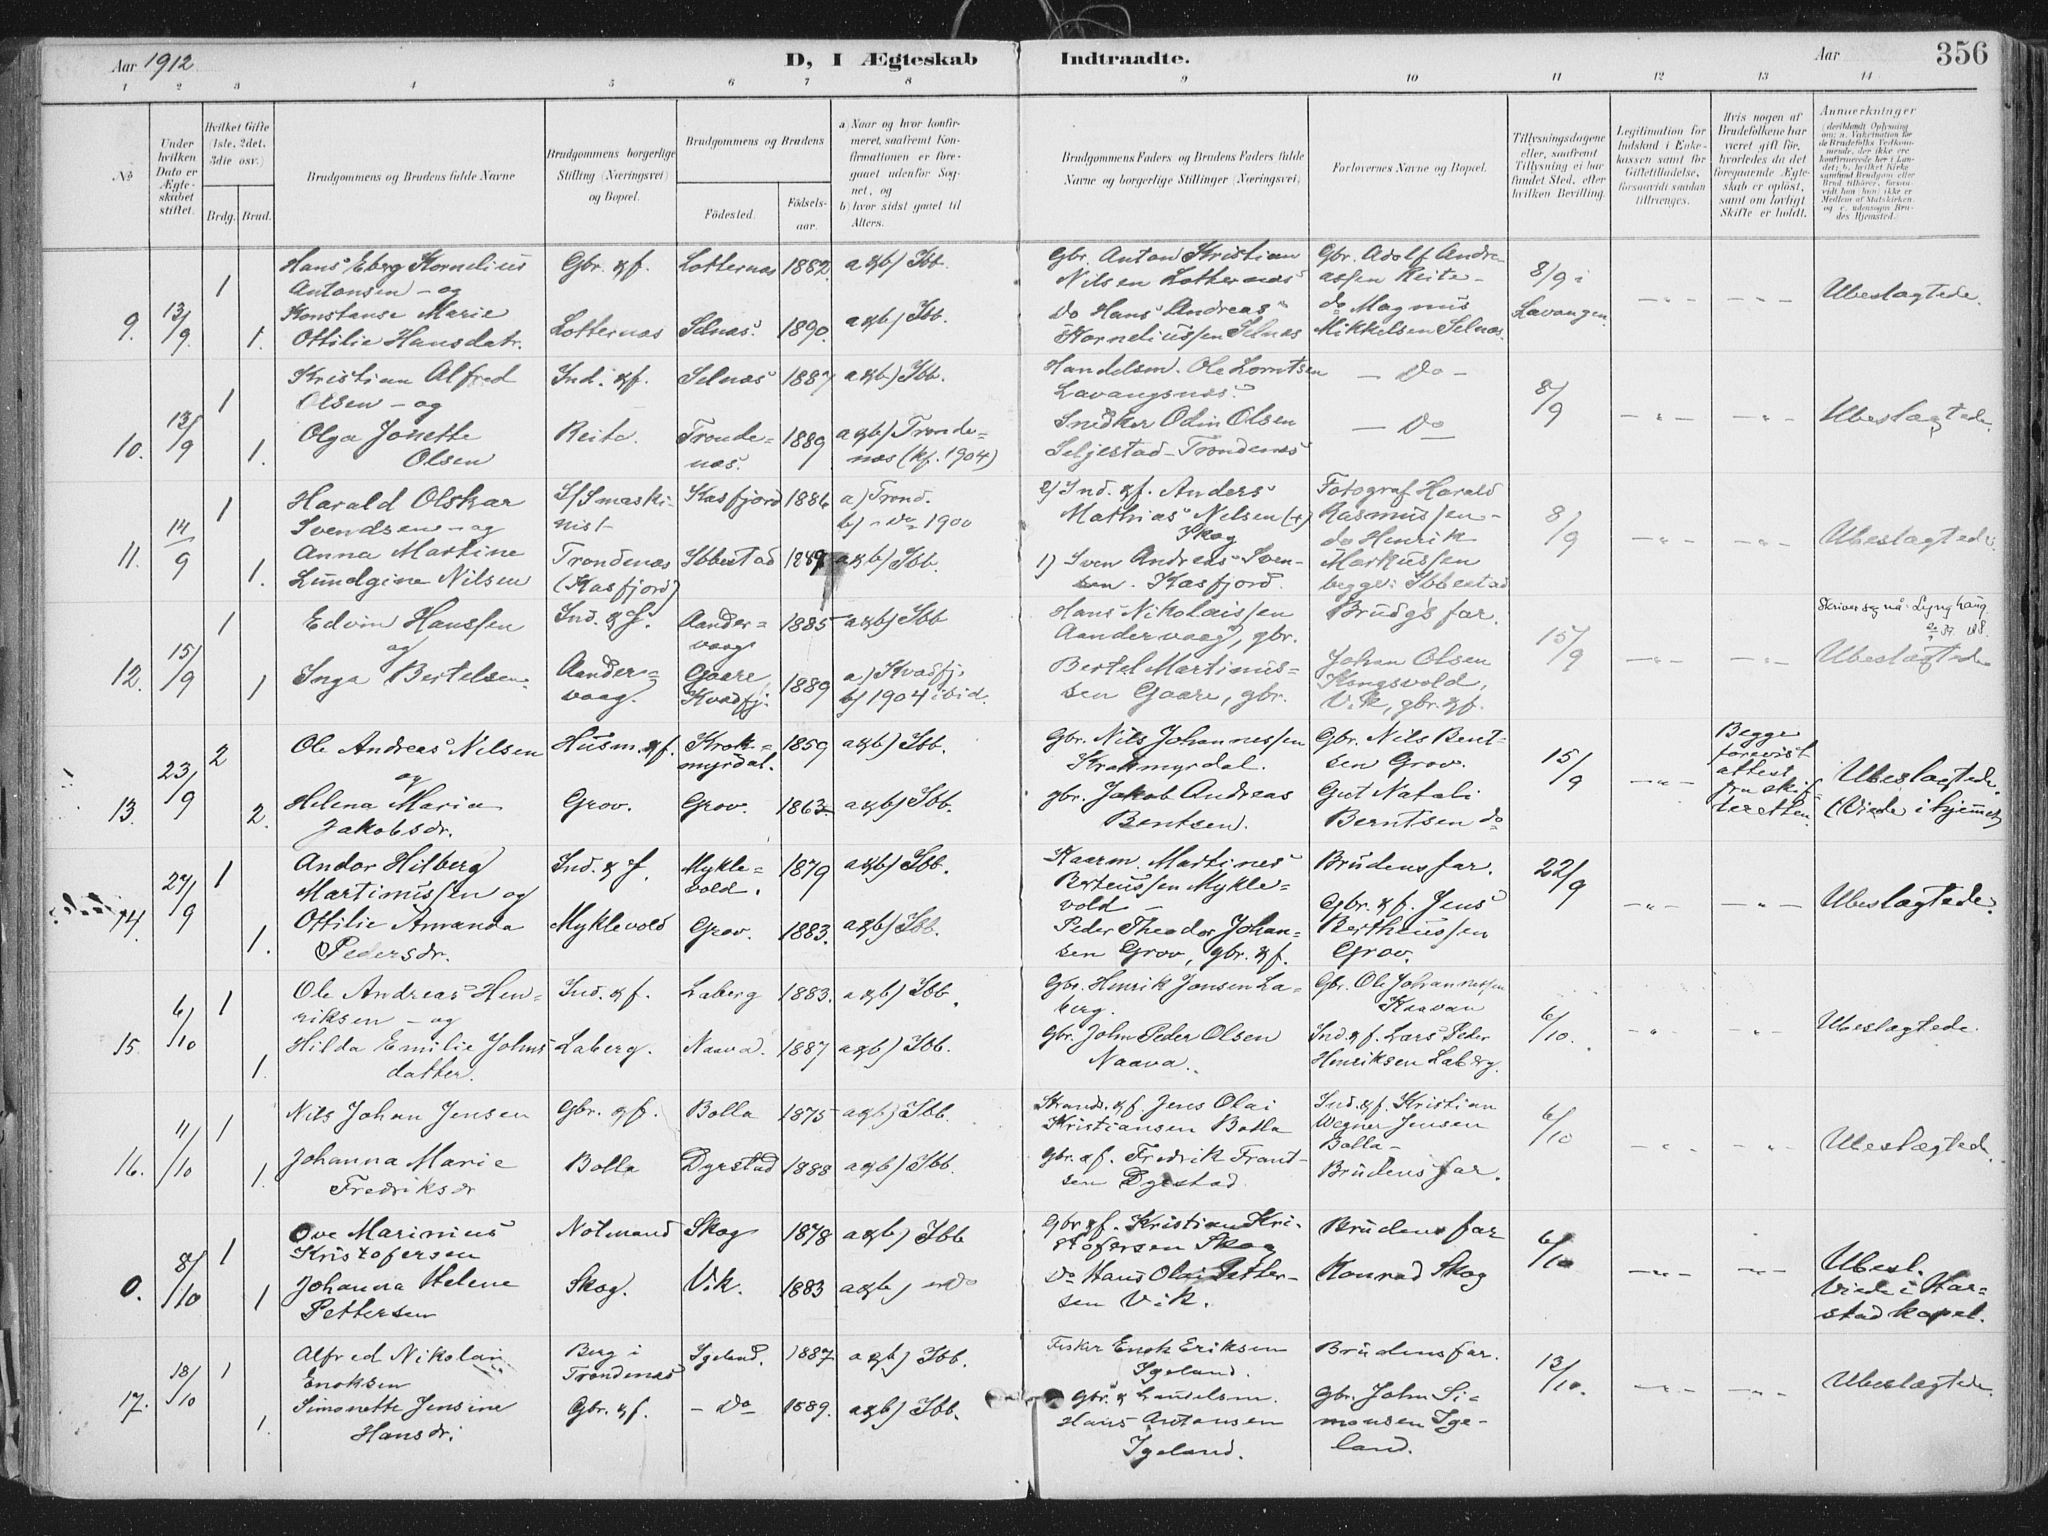 Aar 1912
D, I Ægteskab Indtraadte.
Aar
356
1 2 3 4 5 6 7 8 9 10 11 12 13 14
No
Under hvilken Dato er Ægteskabet stiftet.
Hvilket Gifte (1ste, 2det, 3die osv.)
Brdg. Brud.
Brudgommens og Brudens fulde Navne
Brudgommens borgerlige Stilling (Næringsvei) og Bopæl.
Brudgommens og Brudens
Födested.
Födselsaar.
a) Naar og hvor konfirmeret, saafremt Konfirmationen er foregaaet udenfor Sognet, og
b) hvor sidst gaaet til Alters.
Brudgommens Faders og Brudens Faders fulde Navne og borgerlige Stillinger (Næringsvei)
Forlovernes Navne og Bopæl.
Tillysningsdagene eller, saafremt Tillysning ei har fundet Sted, efter hvilken Bevilling.
Legitimation for Indskud i Enkekassen samt for Giftetilladelse, forsaavidt saadan tiltrænges.
Hvis nogen af Brudefolkene har været gift før, hvorledes da det foregaaende Ægteskab er opløst, samt om lovligt Skifte er holdt.
Anmærkninger
9. 13/9 1 1.
Hans Eberg Kornelius
Antonsen - og
Konstanse Marie
Ottilie Hansdatr.
Gbr. & f.
Lotternæs
Lotternæs 1882
Selnæs. 1890.
a & b) Ibb.
a & b) Ibb.
Gbr. Anton Kristian
Nilsen Lotternæs
Do Hans Andreas
Korneliussen Selnæs
Gbr. Adolf Andre-
assen Reite -
do Magnus
Mikkelsen Selnæs.
8/9 i
Lavangen.
Ubeslægtede.
10. 13/9 1 1.
Kristian Alfred
Olsen - og
Olga Jonette
Olsen
Ind. & f.
Reite.
Selnæs 1887
Tronde=
næs. 1889
a & b) Ibb.
a & b) Tronde=
næs (kf. 1904)
Handelsm. Ole Lorntsen
Lavangsnæs.
Snedker Odin Olsen
Seljestad - Trondenæs
- Do -
- Do
8/9
Ubeslægtede.
11. 14/9 1 1.
Harald Olskar
Svendsen - og
Anna Martine
Lundgine Nilsen
D/Smaski-
nist
Trondenæs
(Kasfjord)
Kasfjord 1886
Ibbestad 1889
a) Trond.
b) - do 1900
a & b) Ibb.
2) Ind. & f. Anders
Mathias Nilsen (+)
Skog
1) Sven Andreas Sven-
sen. Kasfjord.
Fotograf Harald
Rasmussen -
do Henrik
Markussen
begge i Ibbestad
8/9
Ubeslægtede.
12. 15/9 1 1
Edvin Hanssen
og
Inga Bertelsen
Ind. & f.
Aander=
vaag.
Aander=
vaag 1885
Gaare,
Kvædfj. 1889
a & b) Ibb
a) Kvæfj.
b) 1904 ibid.
Hans Nikolaissen
Aandervaag, gbr.
Bertel Martinus-
sen Gaare, gbr.
Brudg's far.
Johan Olsen
Kongsvold,
Vik, gbr. & f.
15/9
Skriver seg nå: Lynghaug.
Ubeslægtede
13. 23/9 2 2.
Ole Andreas Nilsen
og
Helena Maria
Jakobsdr.
Husm. & f.
Grov.
Krok=
myrdal. 1859
Grov. 1863
a & b) Ibb.
a & b) Ibb.
Gbr. Nils Johannessen
Krokmyrdal.
gbr. Jakob Andreas
Bentsen.
Gbr. Nils Bent-
sen Grov.
Gut Natali
Berntsen do
15/9
Begge
forevist
attest
fra skif-
teretten.
Ubeslægtede.
(Viede i hjemmet)
14. 27/9 1 1.
Andor Hilberg
Martinussen og
Ottilie Amanda
Pedersdr.
Ind. & f.
Myklevold
Mykle=
vold. 1879
Grov. 1883.
a & b) Ibb.
a & b) Ibb.
Kaarm. Martines
Berteussen Mykle=
vold -
Peder Theodor Johan=
sen Grov, gbr. & f.
Brudens far.
Gbr. & f. Jens
Bertheussen
Grov.
22/9
Ubeslægtede.
15. 6/10 1 1.
Ole Andreas Hen-
riksen - og
Hilda Emilie Johns
datter.
Ind. & f.
Laberg.
Laberg 1883.
Naava. 1887
a & b) Ibb.
a & b) Ibb.
Gbr. Henrik Jonsen La-
berg.
Gbr. John Peder Olsen
Naava.
Gbr. Ole Johannessen
Kaavan
Ind. & f. Lars Peder
Henriksen Laberg.
6/10.
Ubeslægtede.
16. 11/10 1 1.
Nils Johan Jensen
Johanna Marie
Fredriksdr
Gbr. & f.
Bolla
Bolla 1875
Dyrstad 1888
a & b) Ibb.
a & b) Ibb.
Strands. & f. Jens Olai
Kristiansen Bolla
Gbr. & f. Fredrik Frant-
sen Dyrstad
Ind. & f. Kristian
Wegner Jensen
Bolla -
Brudens far.
6/10
Ubeslægtede.
0. 8/10 1 1
Ove Marinius
Kristofersen
Johanna Helene
Pettersen
Notmand
Skog.
Skog 1878
Vik. 1883
a & b) Ibb
a & b) - Do
Gbr & f. Kristian Kri-
stofersen Skog
Do Hans Olai Petter-
sen Vik.
Brudens far
Konrad Skog
6/10
Ubesl.
Viede i Har=
stad kapel.
17. 18/10 1 1.
Alfred Nikolai
Enoksen
Simonette Jensine
Hansdr.
Berg i
Trondenæs
Gbr. & f.
Igeland. 1887
- Do 1889.
a & b) Ibb.
a & b) Ibb.
Fisker Enok Eriksen
Igeland.
Gbr. & Handelsm.
Hans Antonsen
Igeland.
Brudens far.
Gbr. John Si-
monsen Ige-
land.
13/10.
Ubeslægtede.